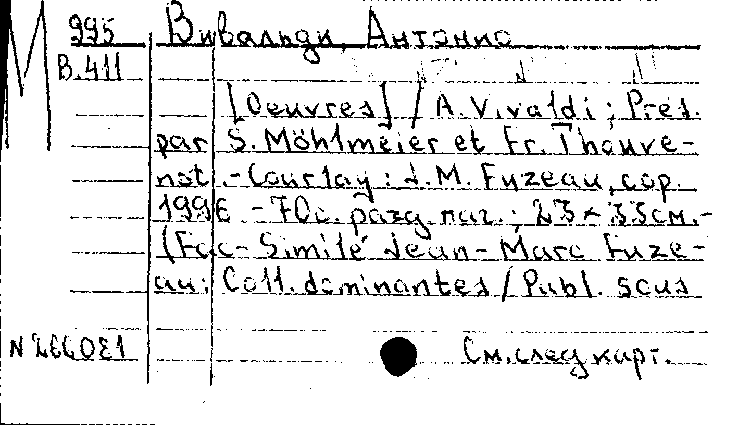 М 995 Вивальди, Антонио
В.411
[Oeuvres] / A. Vivaldi ; Prés.
par S. Möhlmeier et Fr. Thouve-
not. - Courlay : J. M. Fuzeau, cop.
1996. - 70 с. разд. паг. ; 23 × 33 см. -
(Fac-Similé Jean-Marc Fuze-
au: Coll. dominantes / Publ. sous
См. след. карт.